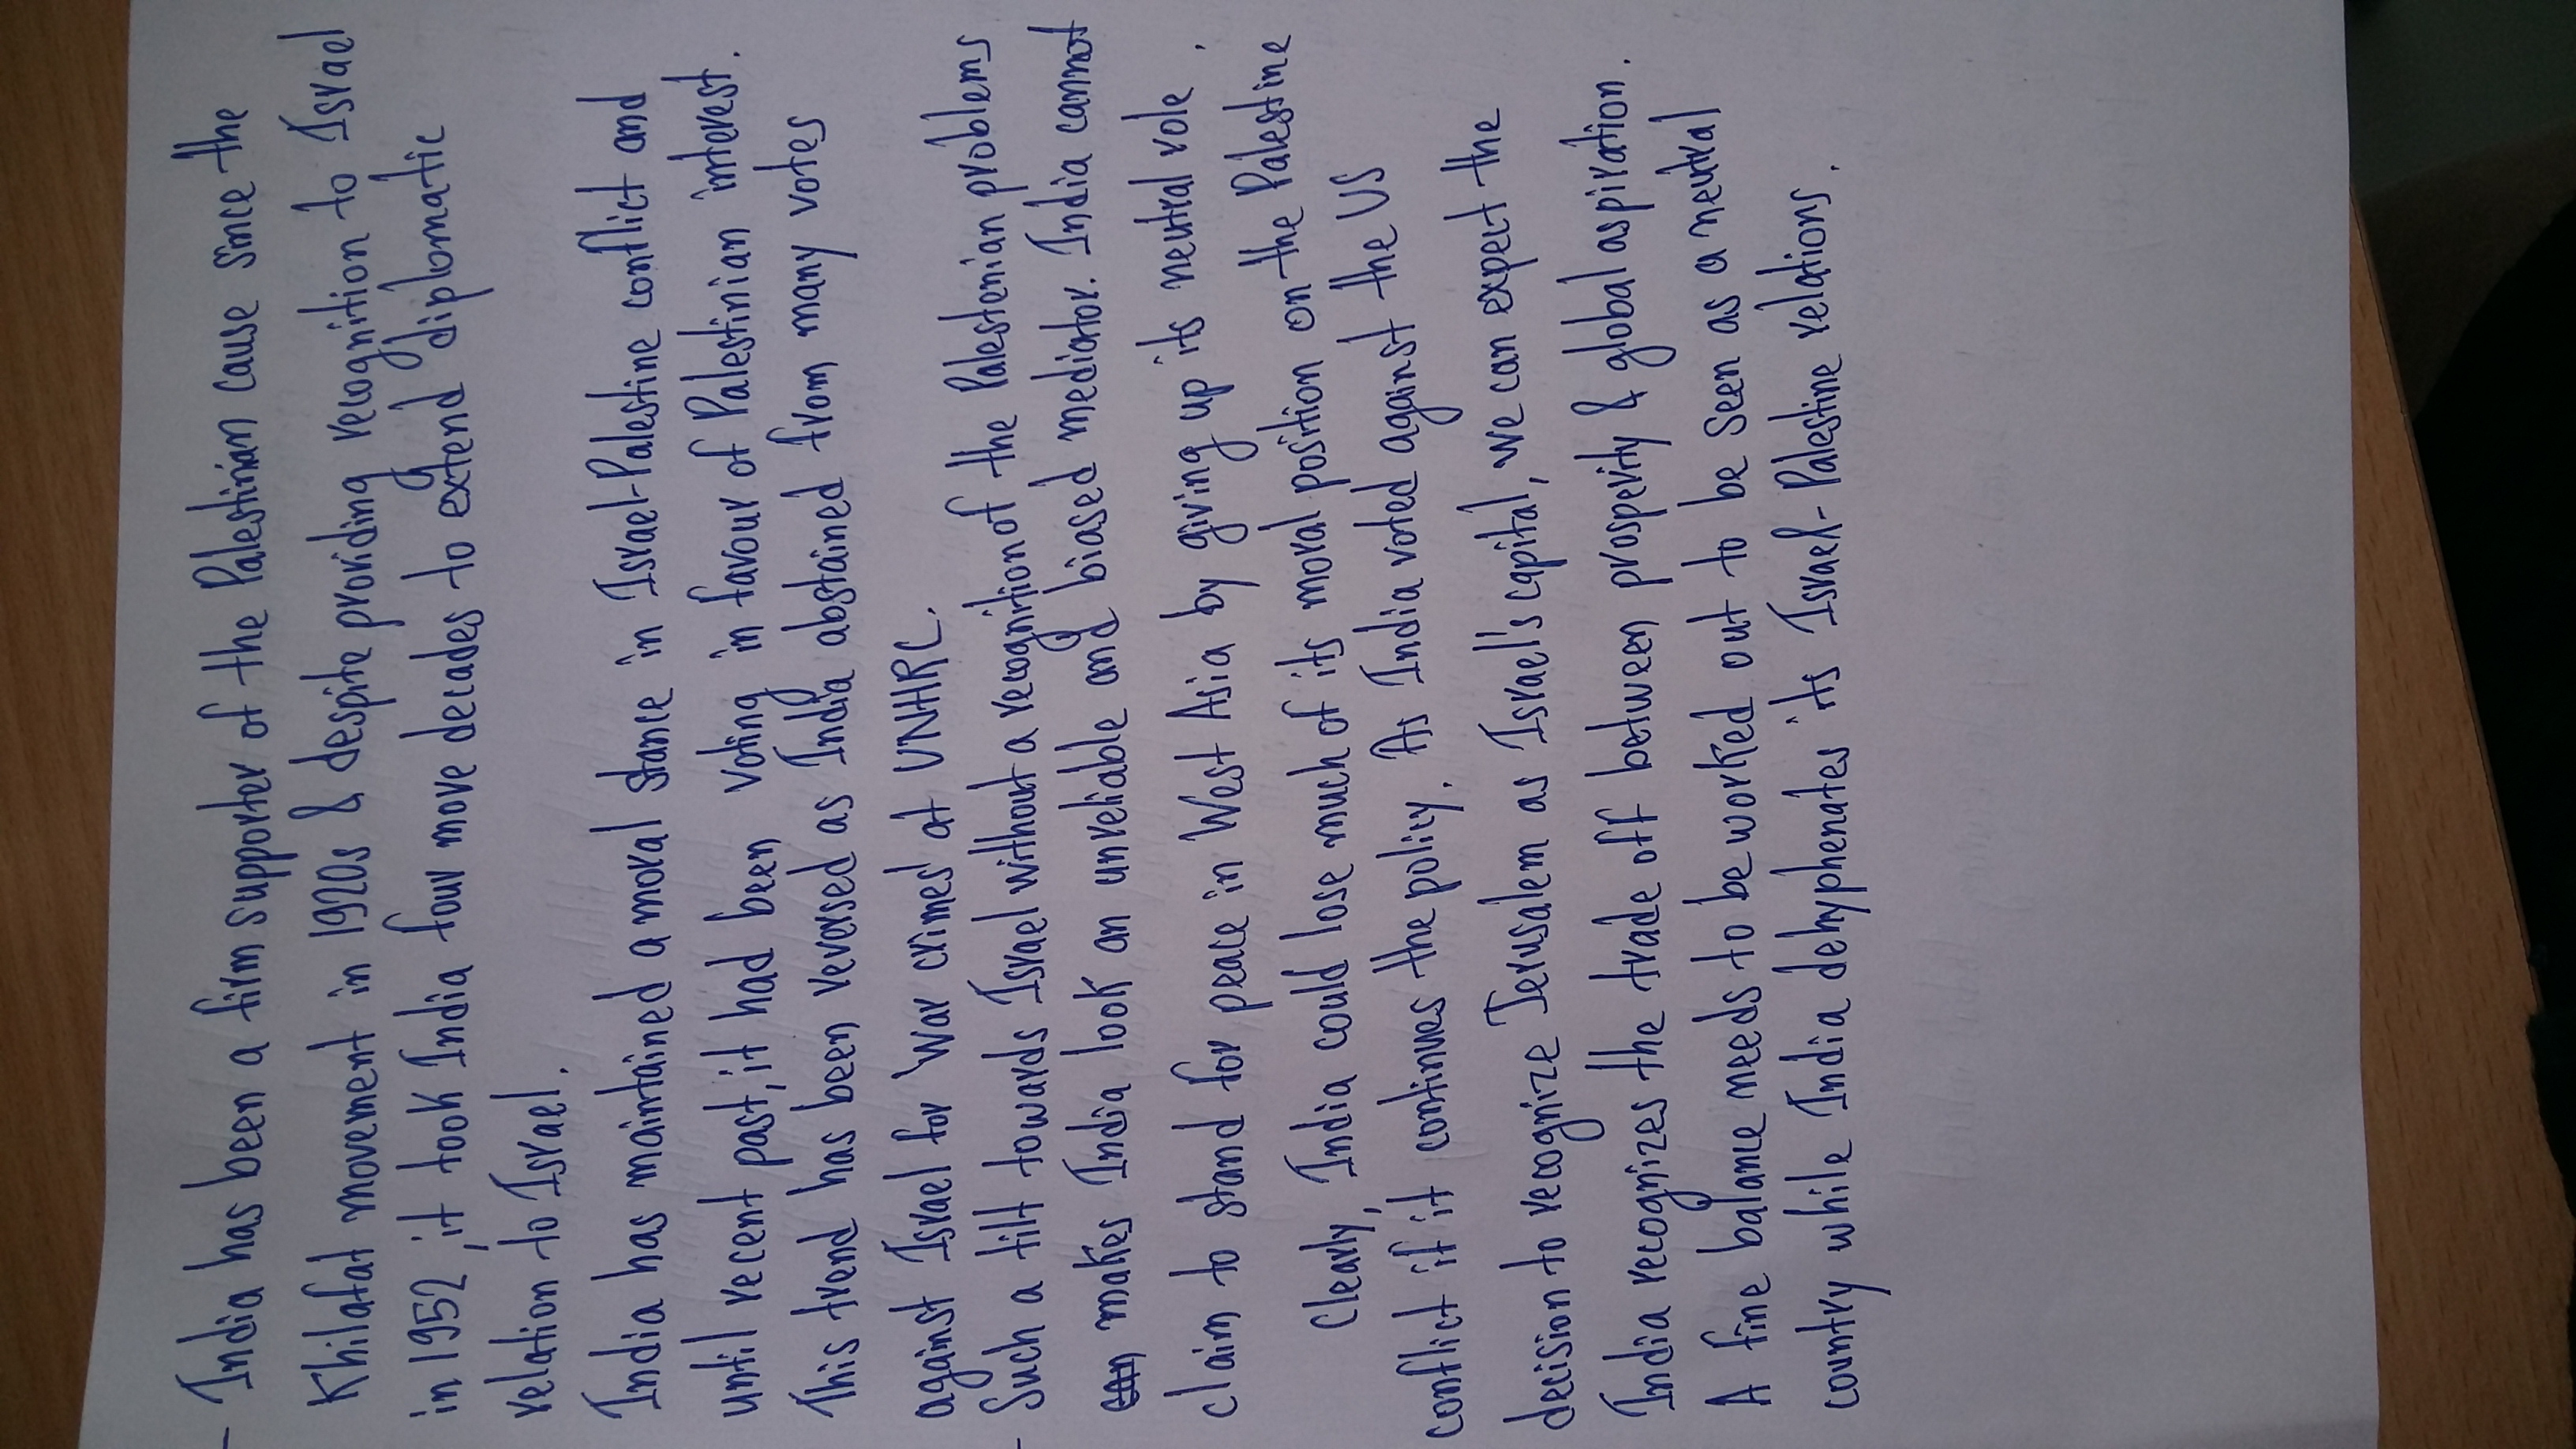 - India has been a firm supporter of the Palestinian cause since the
Khilafat movement in 1920s & despite providing recognition to Israel
in 1952, it took India four more decades to extend diplomatic
relation to Israel.
India has maintained a moral stance in Israel-Palestine conflict and
until recent past, it had been voting in favour of Palestinian interest.
This trend has been reversed as India abstained from many votes
against Israel for 'war crimes' at UNHRC.
- Such a tilt towards Israel without a recognition of the Palestenian problems
makes India look an unreliable and biased mediator. India cannot
claim to stand for peace in West Asia by giving up its neutral role.
Clearly, India could lose much of its moral position on the Palestine
conflict if it continues the policy. As India voted against the US
decision to recognize Jerusalem as Israel's capital, we can expect the
India recognizes the trade off between prosperity & global aspiration.
A fine balance needs to be worked out to be seen as a neutral
country while India dehyphenates its Israel-Palestine relations.